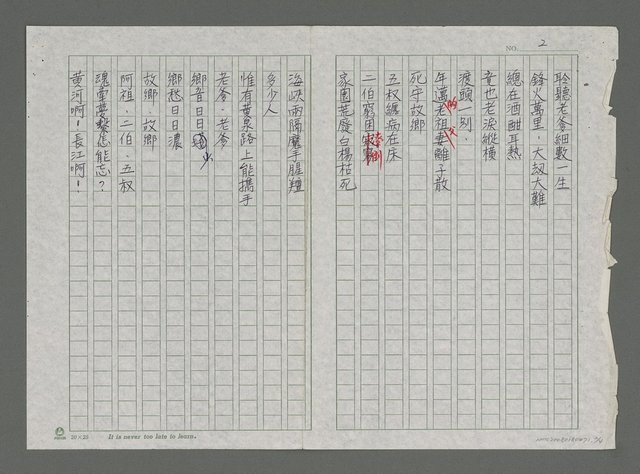 NO. 2
聆聽老爹細數一生
鋒火萬里，大劫大難
總在酒酣耳熱
竟也老淚縱橫
渡頭一別
年邁的老祖妻離子散
死守故鄉
五叔纏病在床
二伯窮困潦倒
家園荒廢白楊枯死
海峽兩隔魔手腥羶
多少人
惟有黃泉路上能攜手
老爹，老爹
鄉音日日少
鄉愁日日濃
故鄉 故鄉
阿祖，二伯，五叔
魂牽夢縈怎能忘？
黃河啊！長江啊！
20×25 It is never too late to learn.